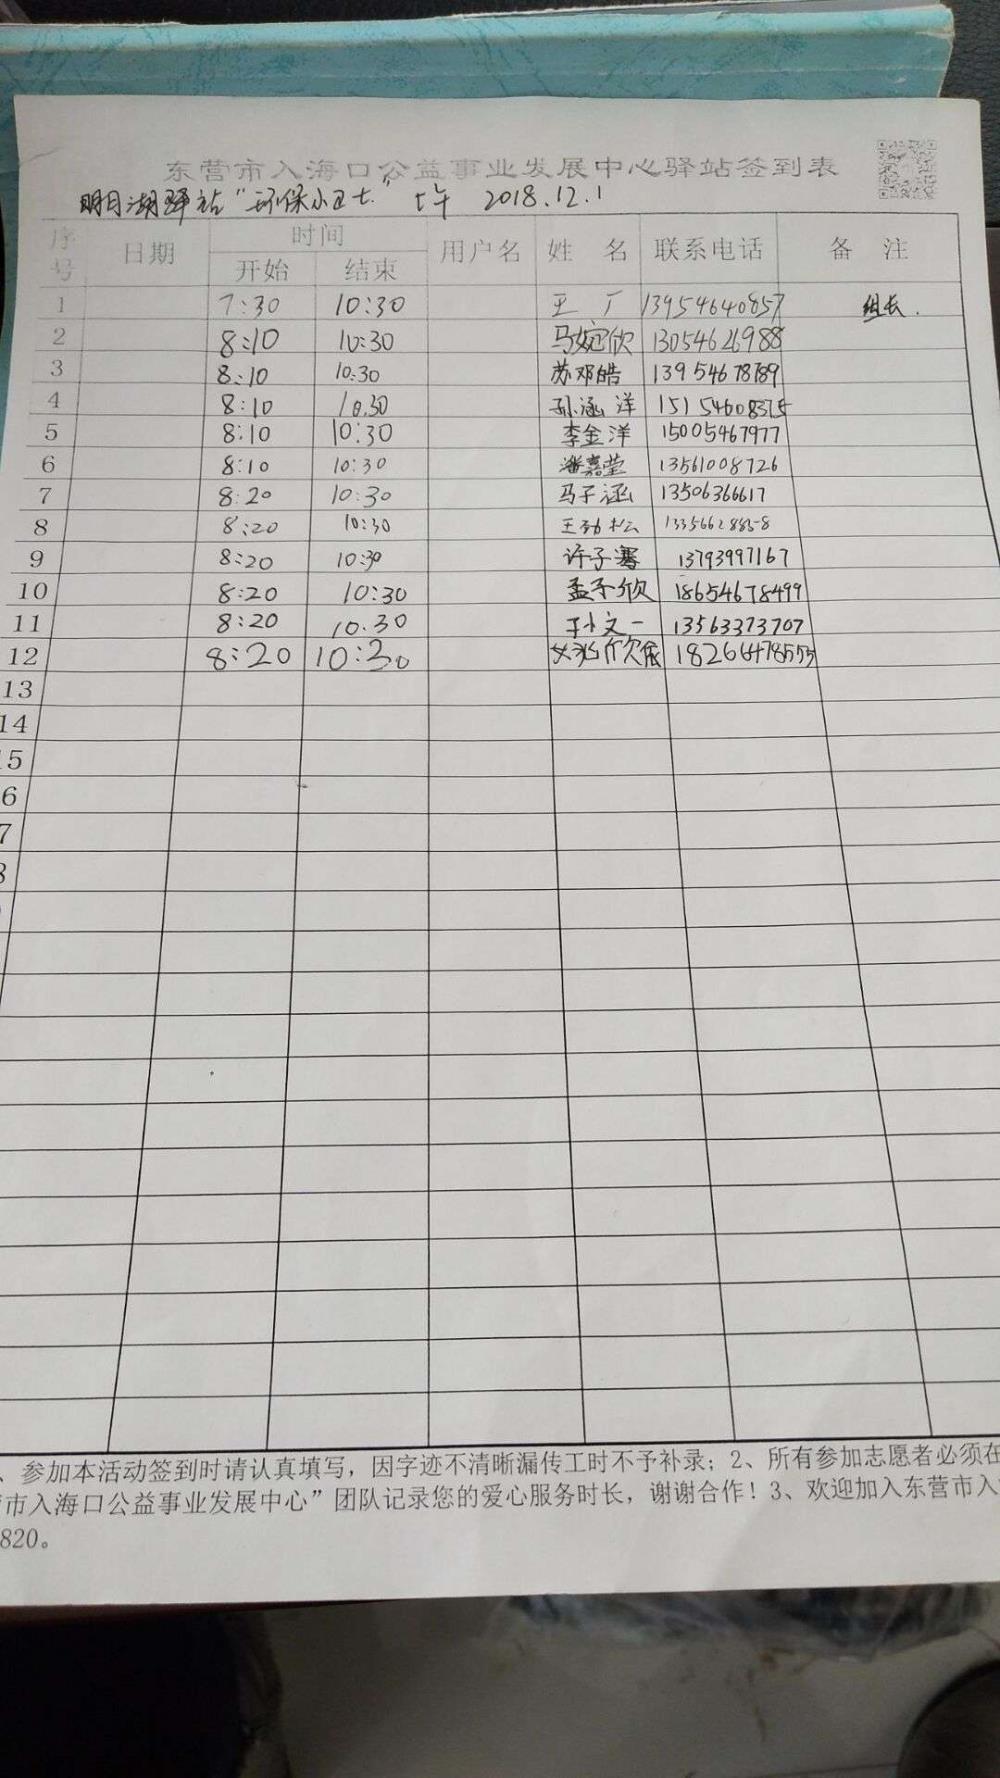 东营市入海口公益事业发展中心驿站签到表
明月湖驿站“环保小卫士” 上午 2018.12.1
序号 日期 时间 用户名 姓 名 联系电话 备 注
开始 结束
1 7:30 10:30 王 广 13954640857 组长.
2 8:10 10:30 马婉欣 13054626988
3 8:10 10:30 苏邓皓 13954678789
4 8:10 10:30 孙涵洋 15154608375
5 8:10 10:30 李金洋 15005467977
6 8:10 10:30 潘嘉莹 13561008726
7 8:20 10:30 马子涵 13506366617
8 8:20 10:30 王 松 13356628858
9 8:20 10:30 许子骞 13793997167
10 8:20 10:30 孟子欣 18654678499
11 8:20 10:30 文一 13563373707
12 8:20 10:30 欣 18266478555
13
14
15
6
7
8
、参加本活动签到时请认真填写，因字迹不清晰漏传工时不予补录；2、所有参加志愿者必须在
营市入海口公益事业发展中心”团队记录您的爱心服务时长，谢谢合作！3、欢迎加入东营市入
820。